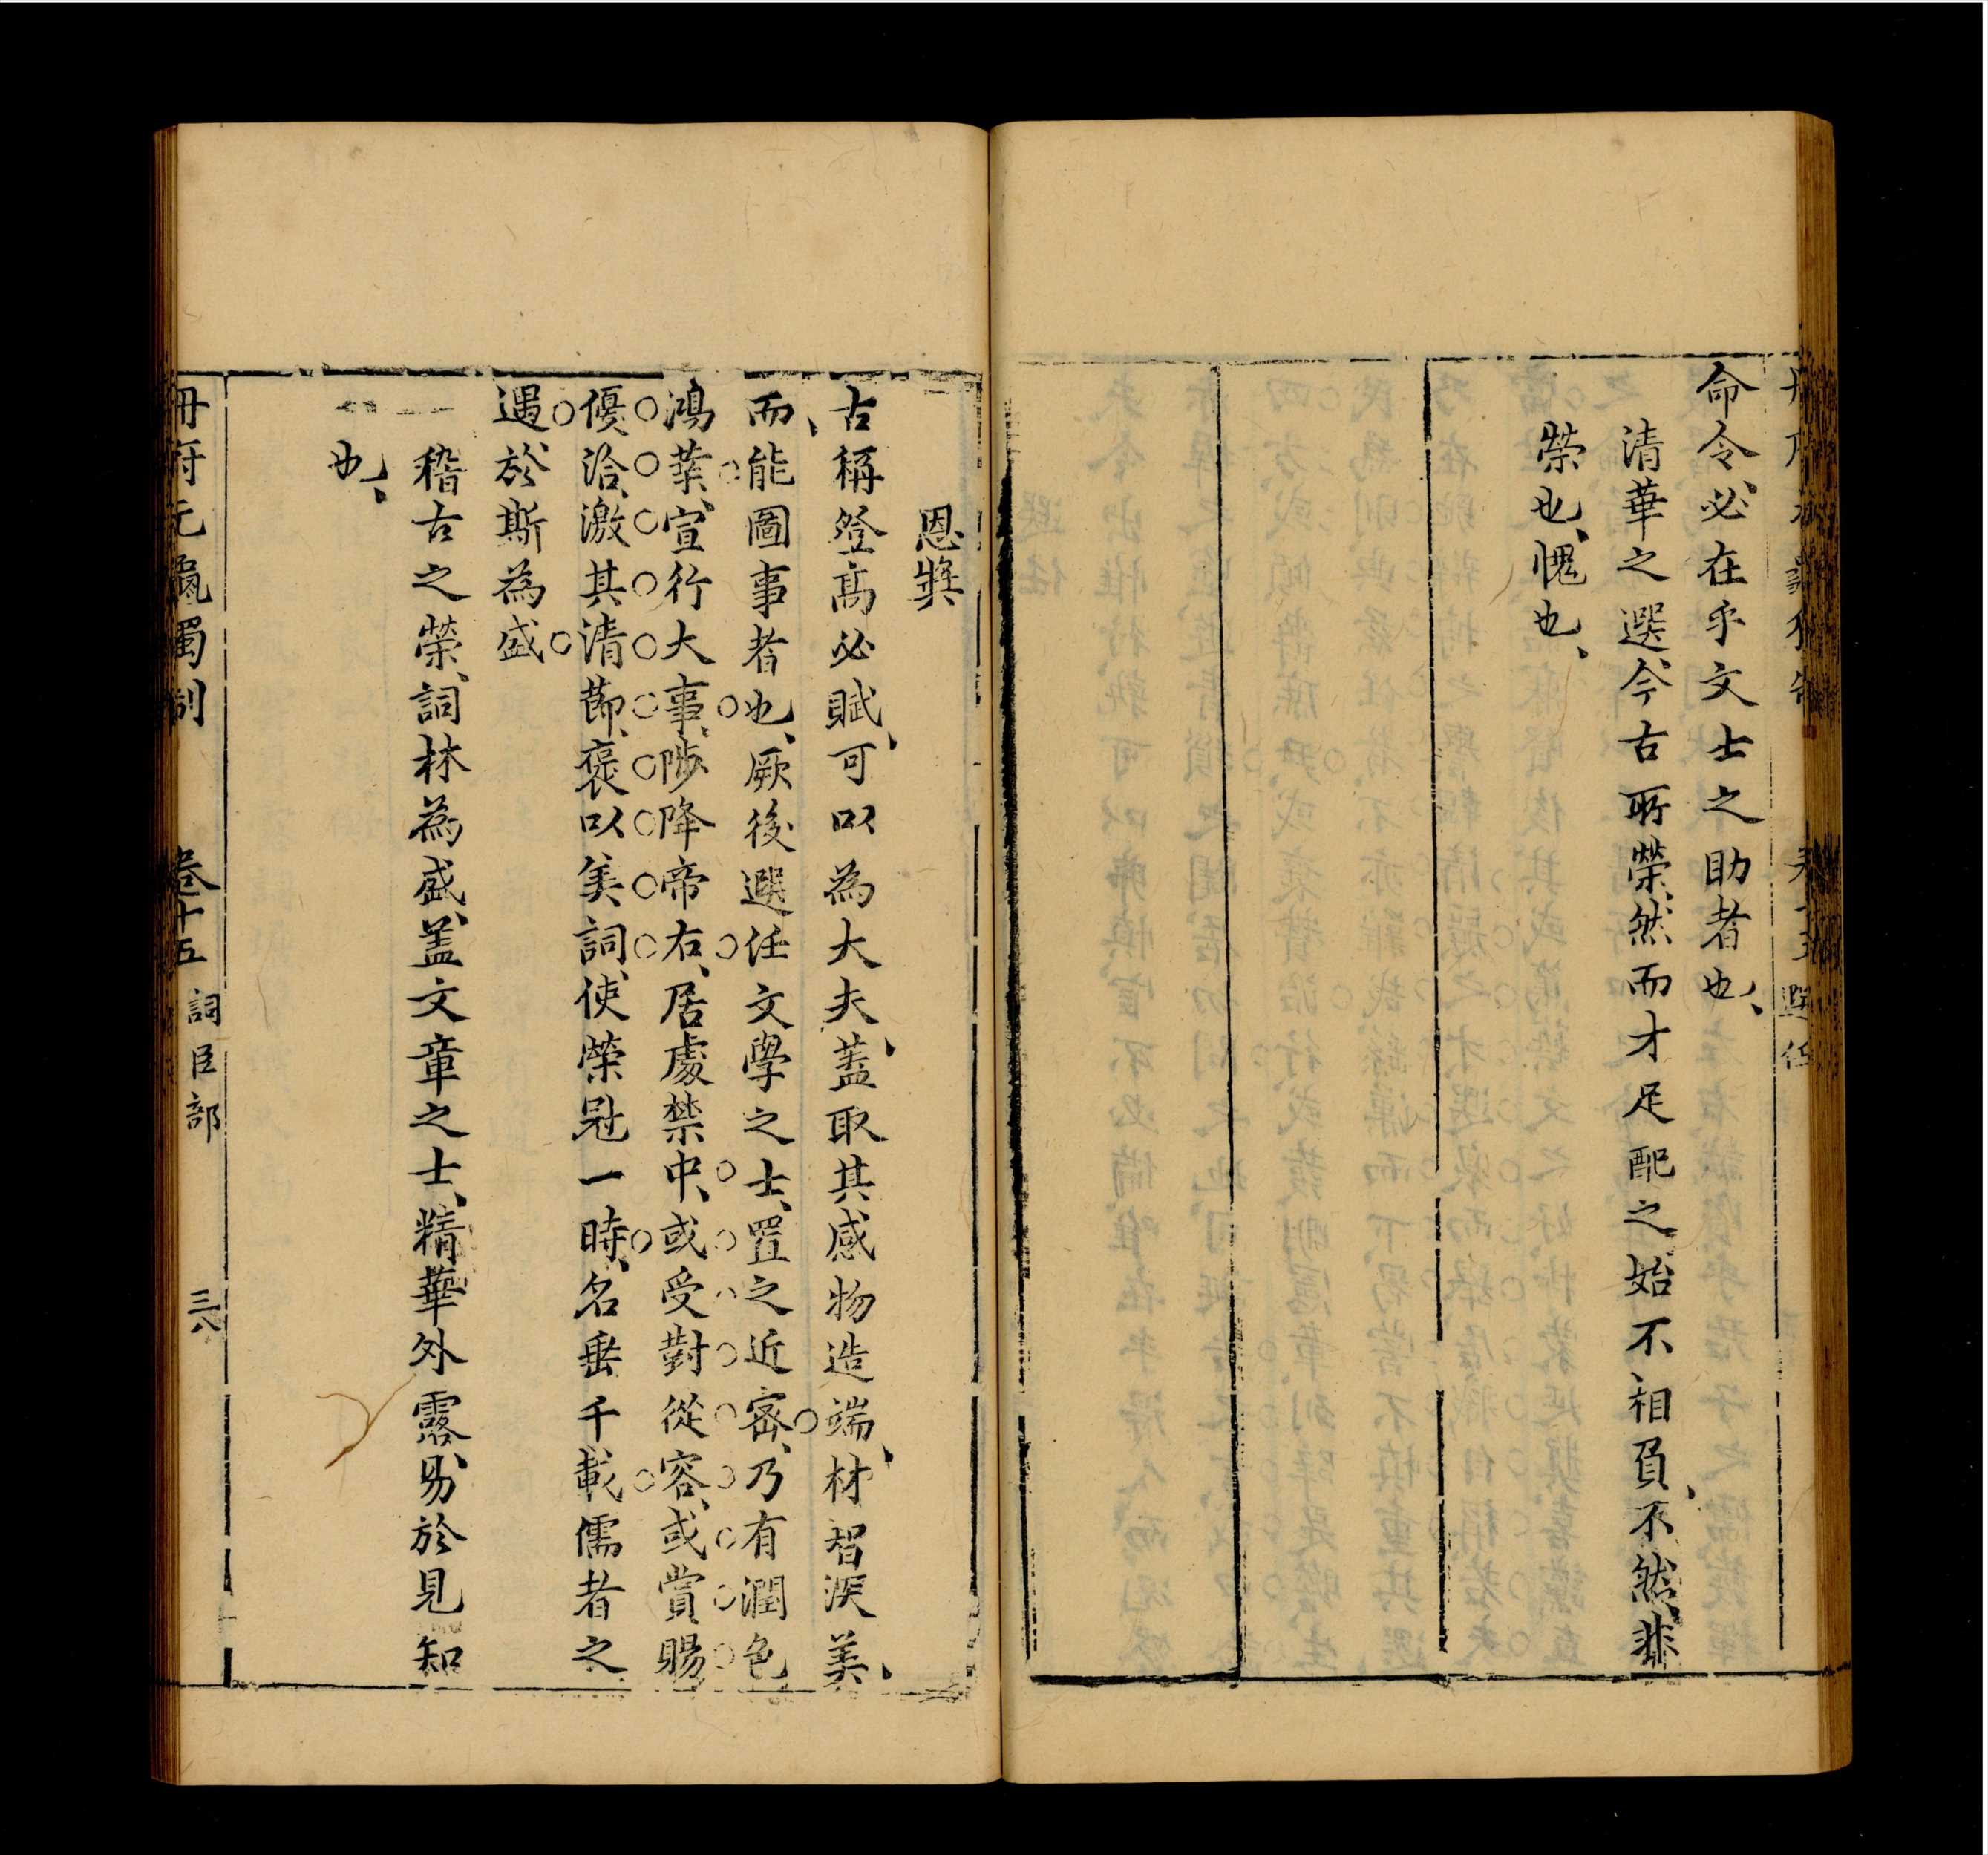 命令必在乎文士之助者也
清華之選今古所榮然而才足配之始不相負不然非
榮也愧也
恩奬
古稱登高必賦可以為大夫蓋取其感物造端材智深美
而能圖事者也厥後選任文學之士置之近密乃有潤色
鴻業宣行大事陟降帝右居處禁中或受對從容或賞賜
優洽激其清節褒以美詞使榮冠一時名垂千載儒者之
遇於斯為盛
稽古之榮詞林為盛蓋文章之士精華外露易於見知
也
冊府元龜獨制 卷十五 詞臣部 三八